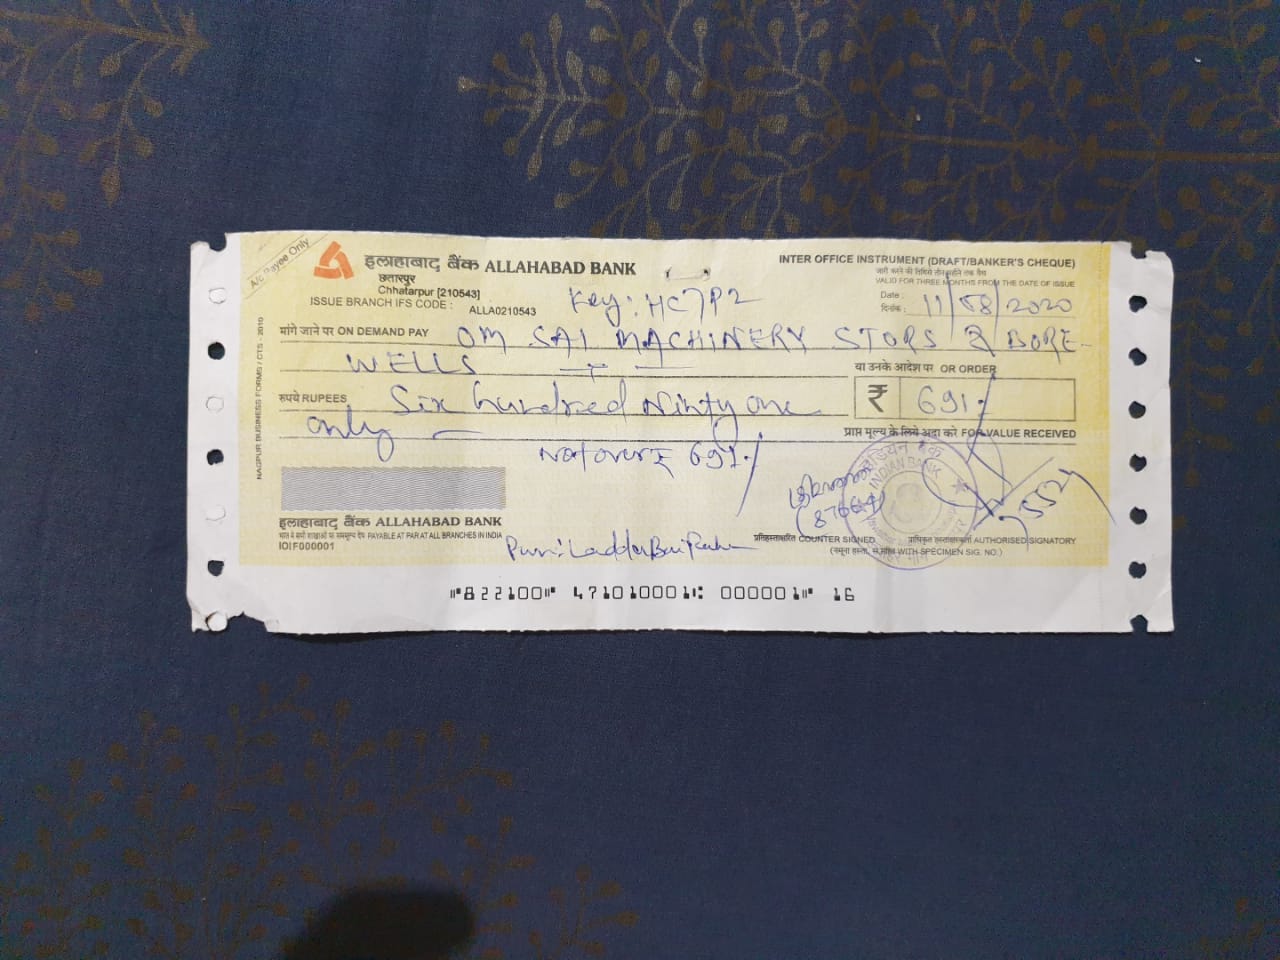 A/c Payee Only
इलाहाबाद बैंक ALLAHABAD BANK
छतरपुर
Chhatarpur [210543]
ISSUE BRANCH IFS CODE : ALLA0210543
Key: HC7P2
INTER OFFICE INSTRUMENT (DRAFT/BANKER'S CHEQUE)
जारी करने की तिथिसे तीन महीने तक वैध
VALID FOR THREE MONTHS FROM THE DATE OF ISSUE
Date :
दिनांक : 11/08/2020
मांगे जाने पर ON DEMAND PAY OM SAI MACHINERY STORS & BORE-
WELLS
या उनके आदेश पर OR ORDER
रुपये RUPEES Six hundred Ninty one
₹ 691/-
only
प्राप्त मूल्य के लिये अदा करे FOR VALUE RECEIVED
Not over ₹ 691/-
NAGPUR BUSINESS FORMS / CTS - 2010
इंडियन बैंक
INDIAN BANK
इलाहाबाद बैंक ALLAHABAD BANK
PAYABLE AT PAR AT ALL BRANCHES IN INDIA
IOIF000001
प्रतिहस्ताक्षरित COUNTER SIGNED
AUTHORISED SIGNATORY
WITH SPECIMEN SIG. NO.)
⑈822100⑈ 471010001⑆ 000001⑈ 16